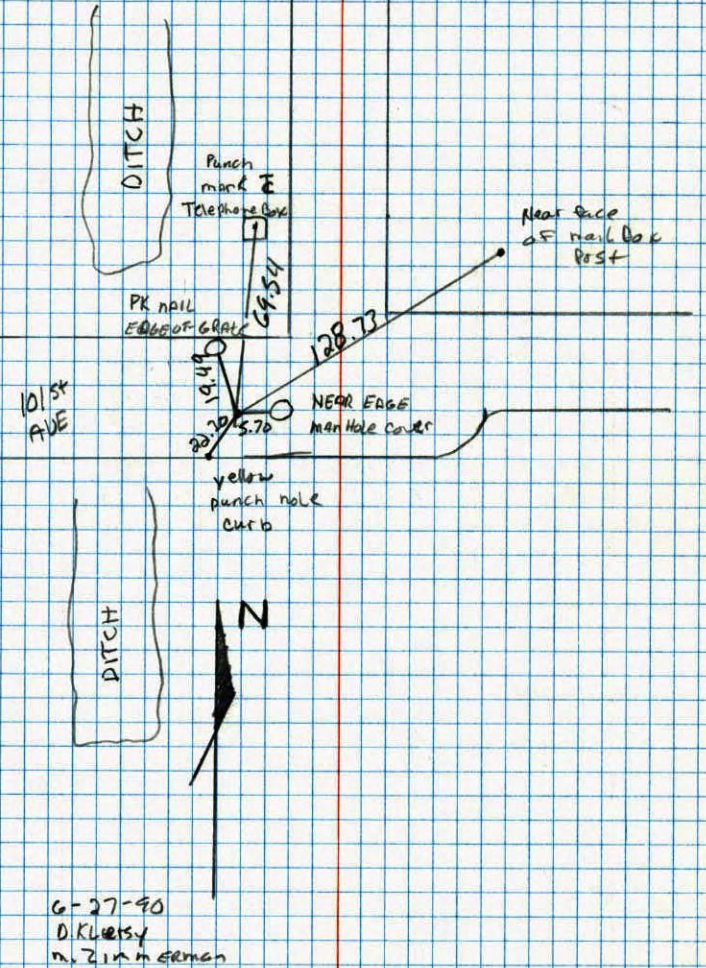 DITCH
Punch
mark ₵
Telephone Box
69.54
Near face
of mail box
Post
PK NAIL
EDGE OF GRATE
19.49
128.73
101st
AVE
22.20
5.70
NEAR EAGE
man Hole cover
yellow
punch hole
curb
DITCH
N
6-27-90
m. Zimmerman